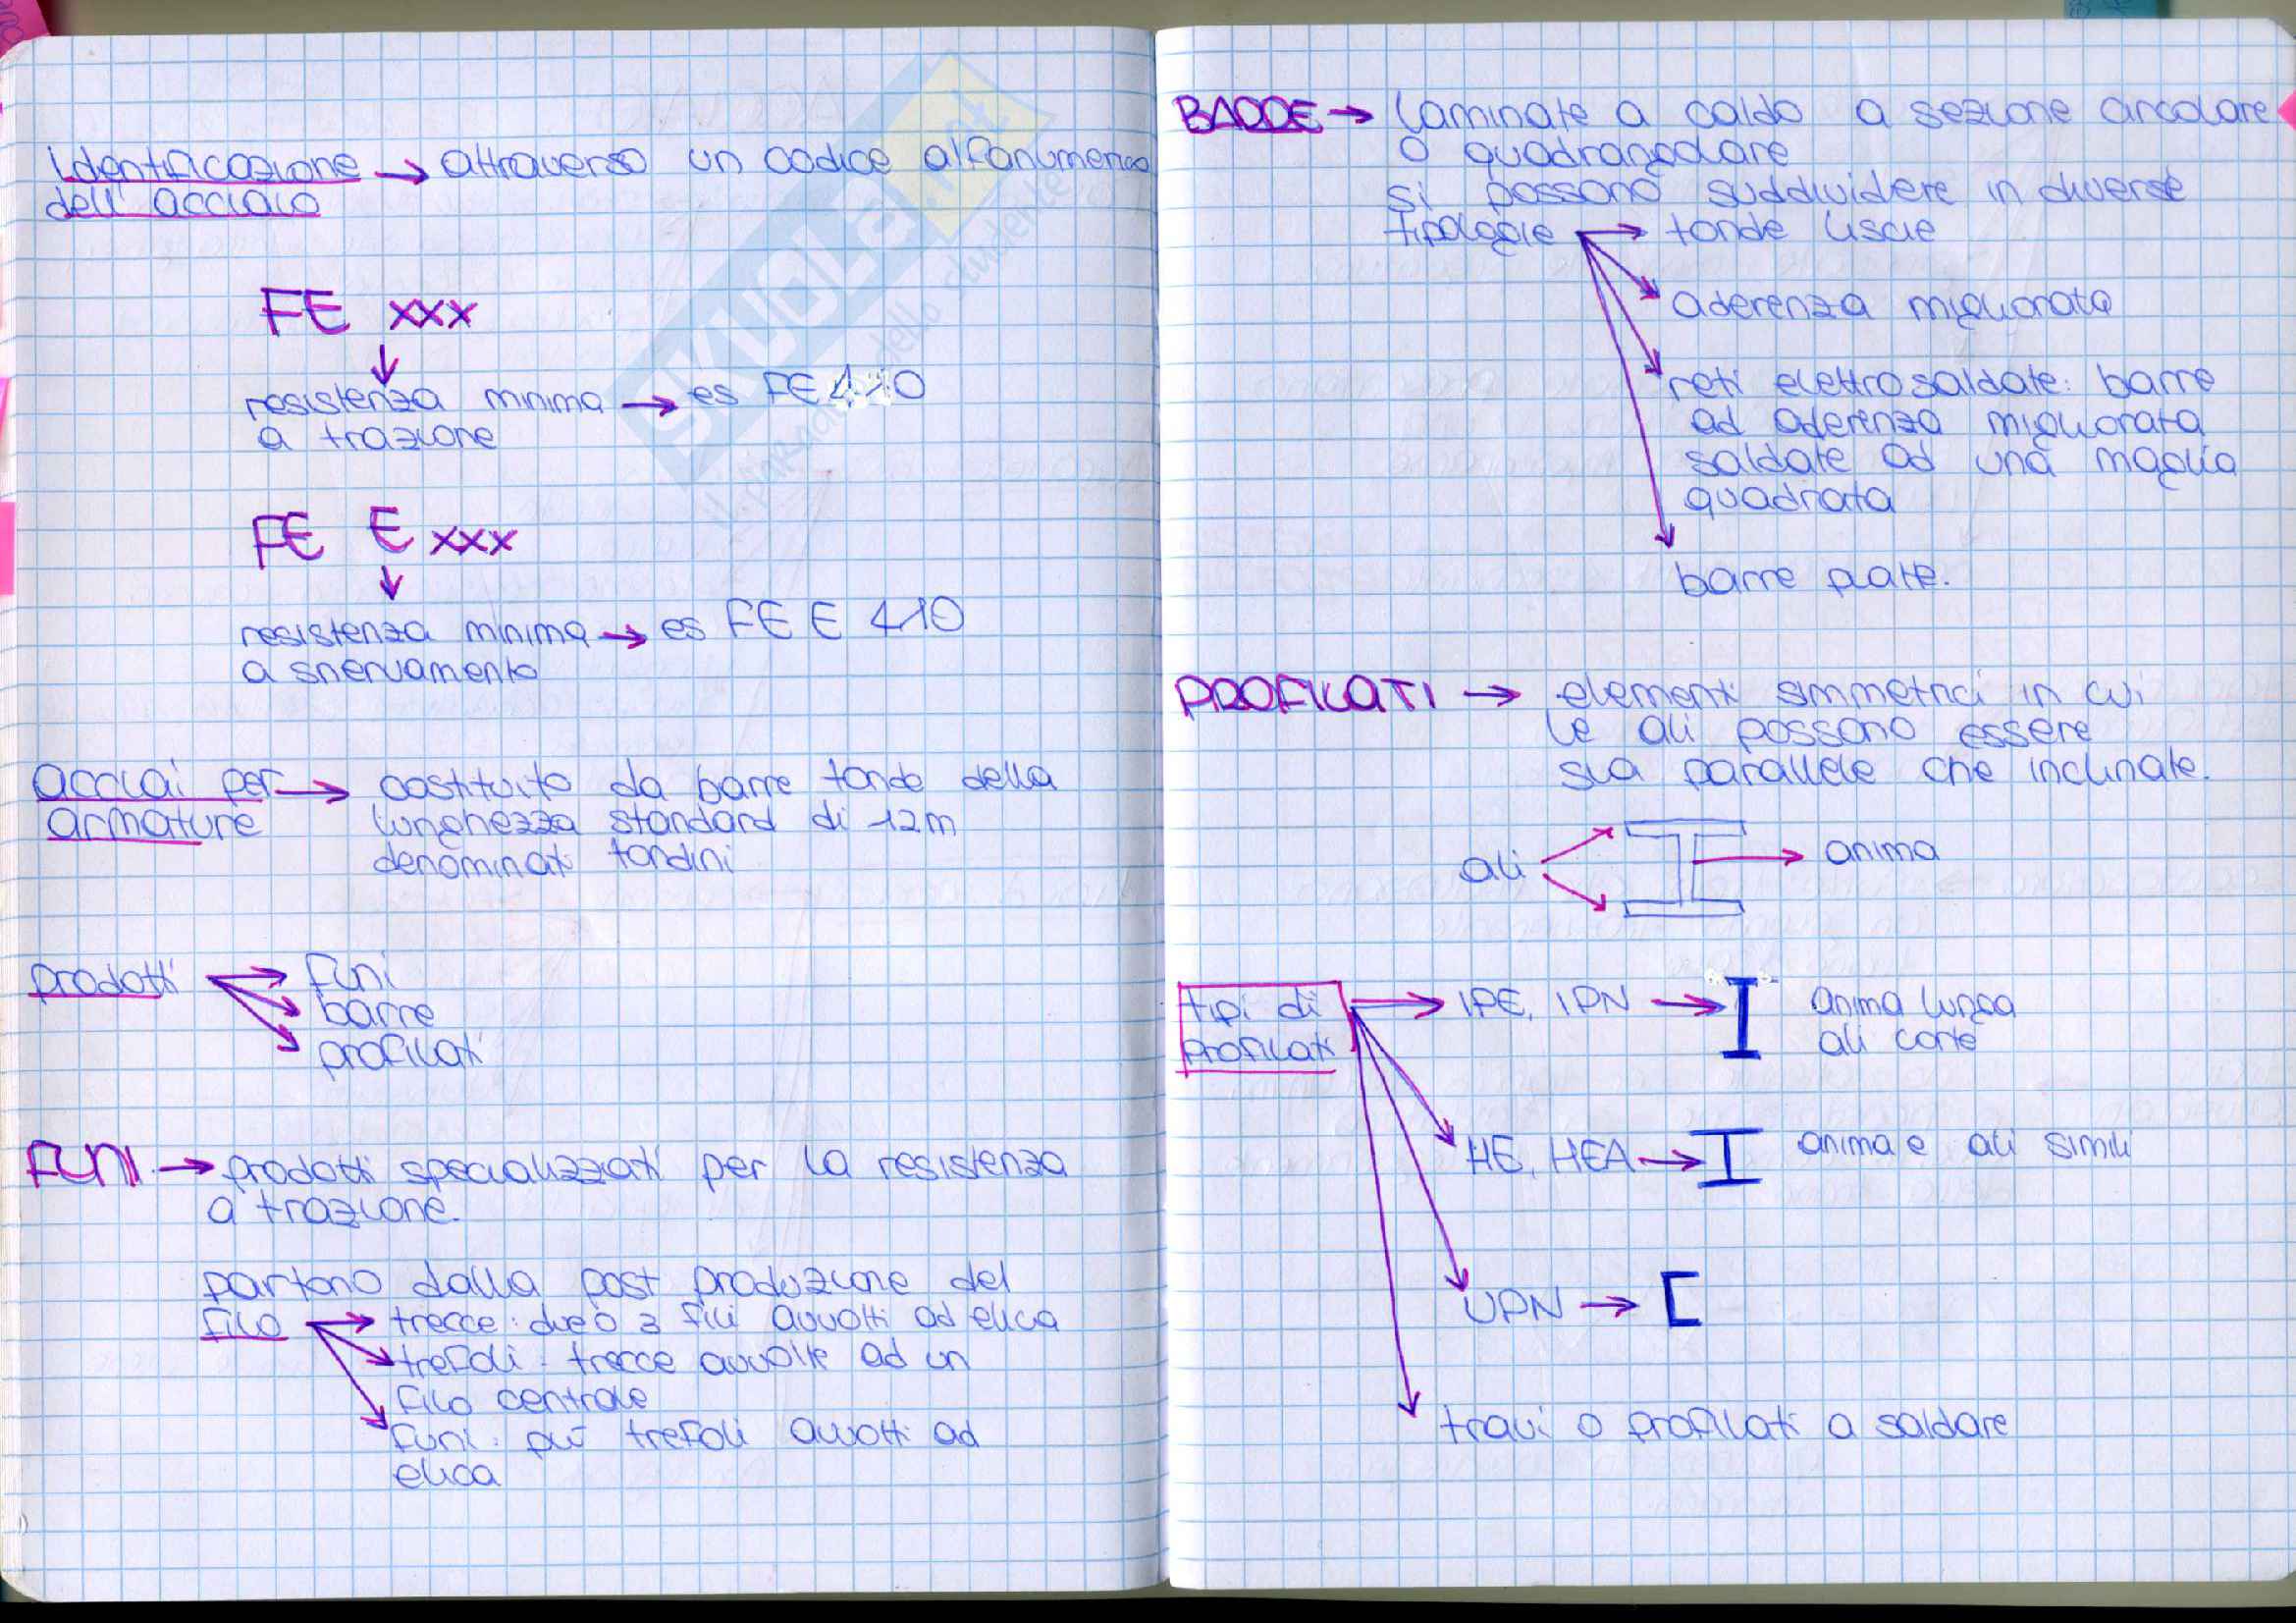 identificazione → attraverso un codice alfanumerico
dell'acciaio
FE xxx
resistenza minima → es FE 410
a trazione
FE E xxx
resistenza minima → es FE E 410
a snervamento
acciai per → costituito da barre tonde della
armature lunghezza standard di 12m
denominati tondini
prodotti → funi
barre
profilati
FUNI → prodotti specializzati per la resistenza
a trazione.
partono dalla post produzione del
filo → trecce: due o 3 fili avvolti ad elica
trefoli: trecce avvolte ad un
filo centrale
funi: più trefoli avvolti ad
elica
BARRE → laminate a caldo a sezione circolare
o quadrangolare
si possono suddividere in diverse
tipologie → tonde liscie
aderenza migliorata
reti elettrosaldate: barre
ad aderenza migliorata
saldate ad una maglia
quadrata
barre piatte.
PROFILATI → elementi simmetrici in cui
le ali possono essere
sia parallele che inclinate.
ali anima
tipi di → IPE, IPN → I anima lunga
profilati ali corte
HE, HEA → I anima e ali simili
UPN → [
travi o profilati a saldare
SKUOLA.net
il paradiso dello studente